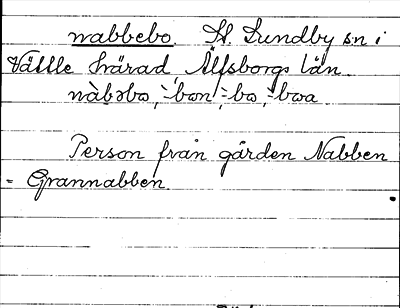 nabbebo, St. Lundby sn i
Vättle härad, Älfsborgs län.
nàbəbo, -bon, -bo, -boa
Person från gården Nabben
= Grannabben.